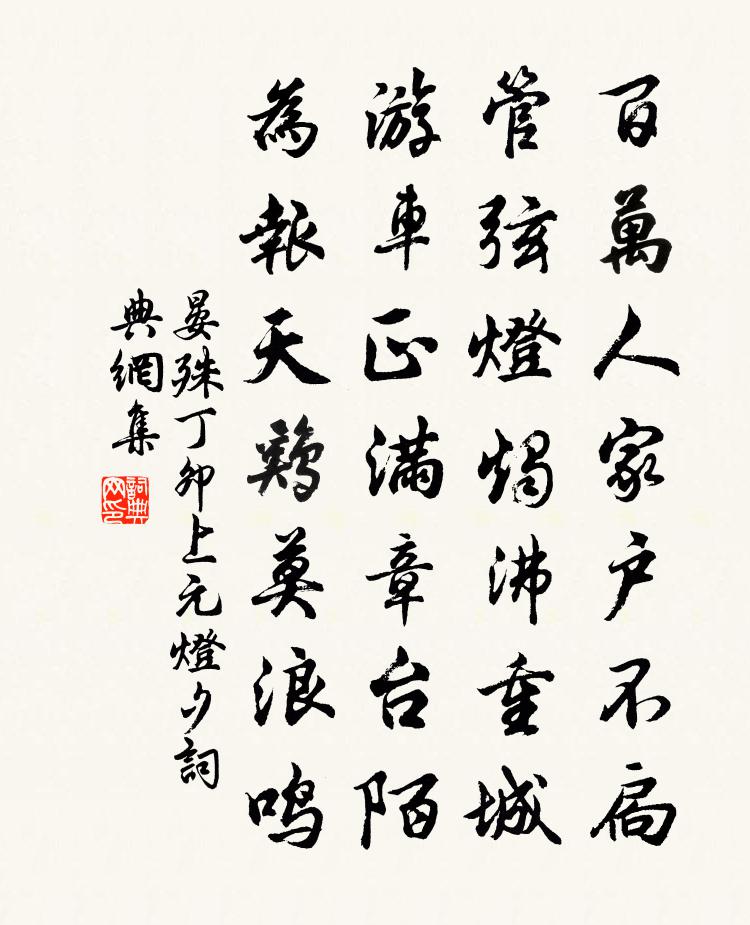 百萬人家户不扃
管弦燈燭沸重城
游車正滿章台陌
為報天鷄莫浪鸣
晏殊丁卯上元燈夕詞
典網集
詞典
网印